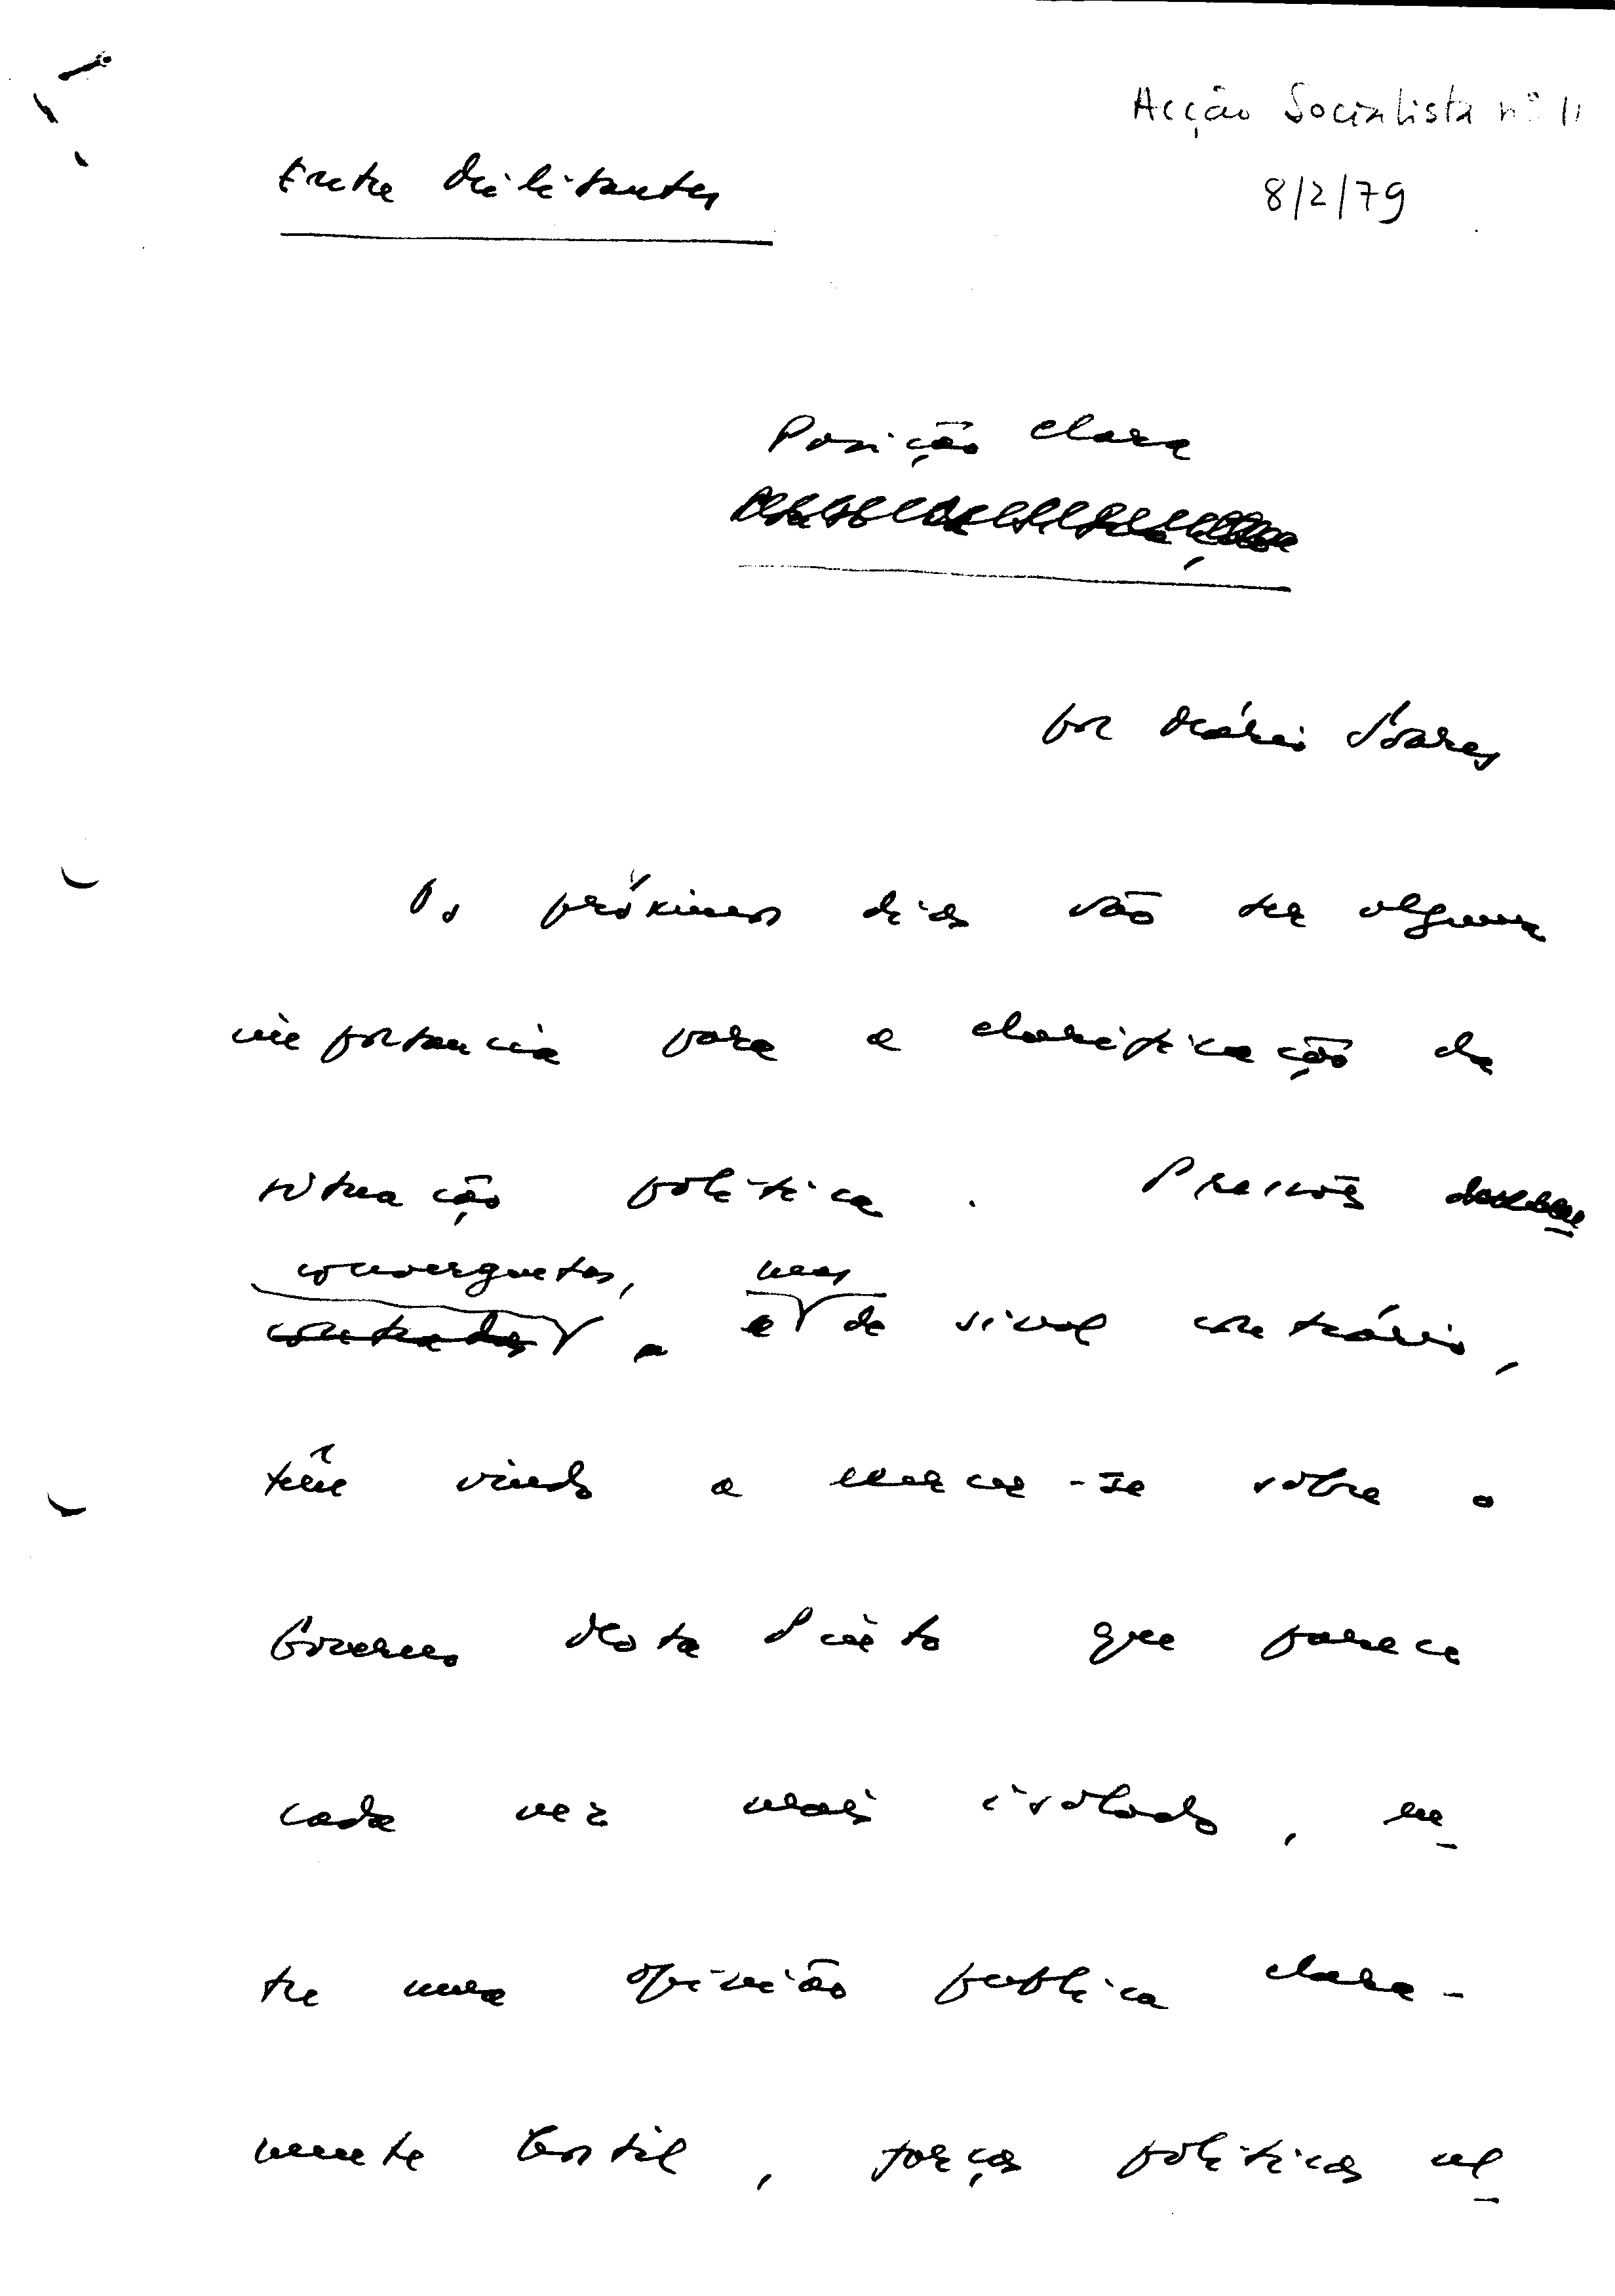 Acção Socialista nº 11
8/2/79
Entre Militantes
Posição clara
por Mário Soares
Os próximos dias vão ter alguma
importancia para a clarificação da
situação política. Pressões
convergentes, mas
contradas e de sinal contrário,
têm vindo a exercer-se sobre o
Governo Mota Pinto que parece
cada vez mais isolado, en
tre uma opinião publica clara-
mente hostil, forças políticas al